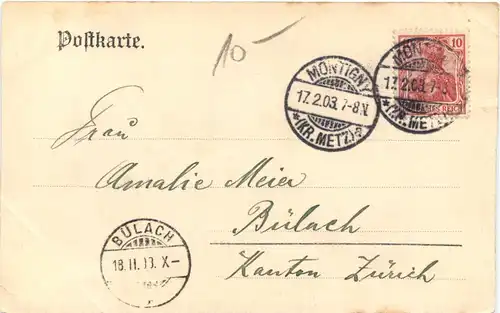 Postkarte.
10-
MONTIGNY
17.2.03. 7-8.N.
*(KR. METZ)
MON
17.2.03. 7-8
(KR. METZ
10
REICH
Frau
Amalie Meier
Bülach
Kanton Zürich
BÜLACH
18.II.      X-